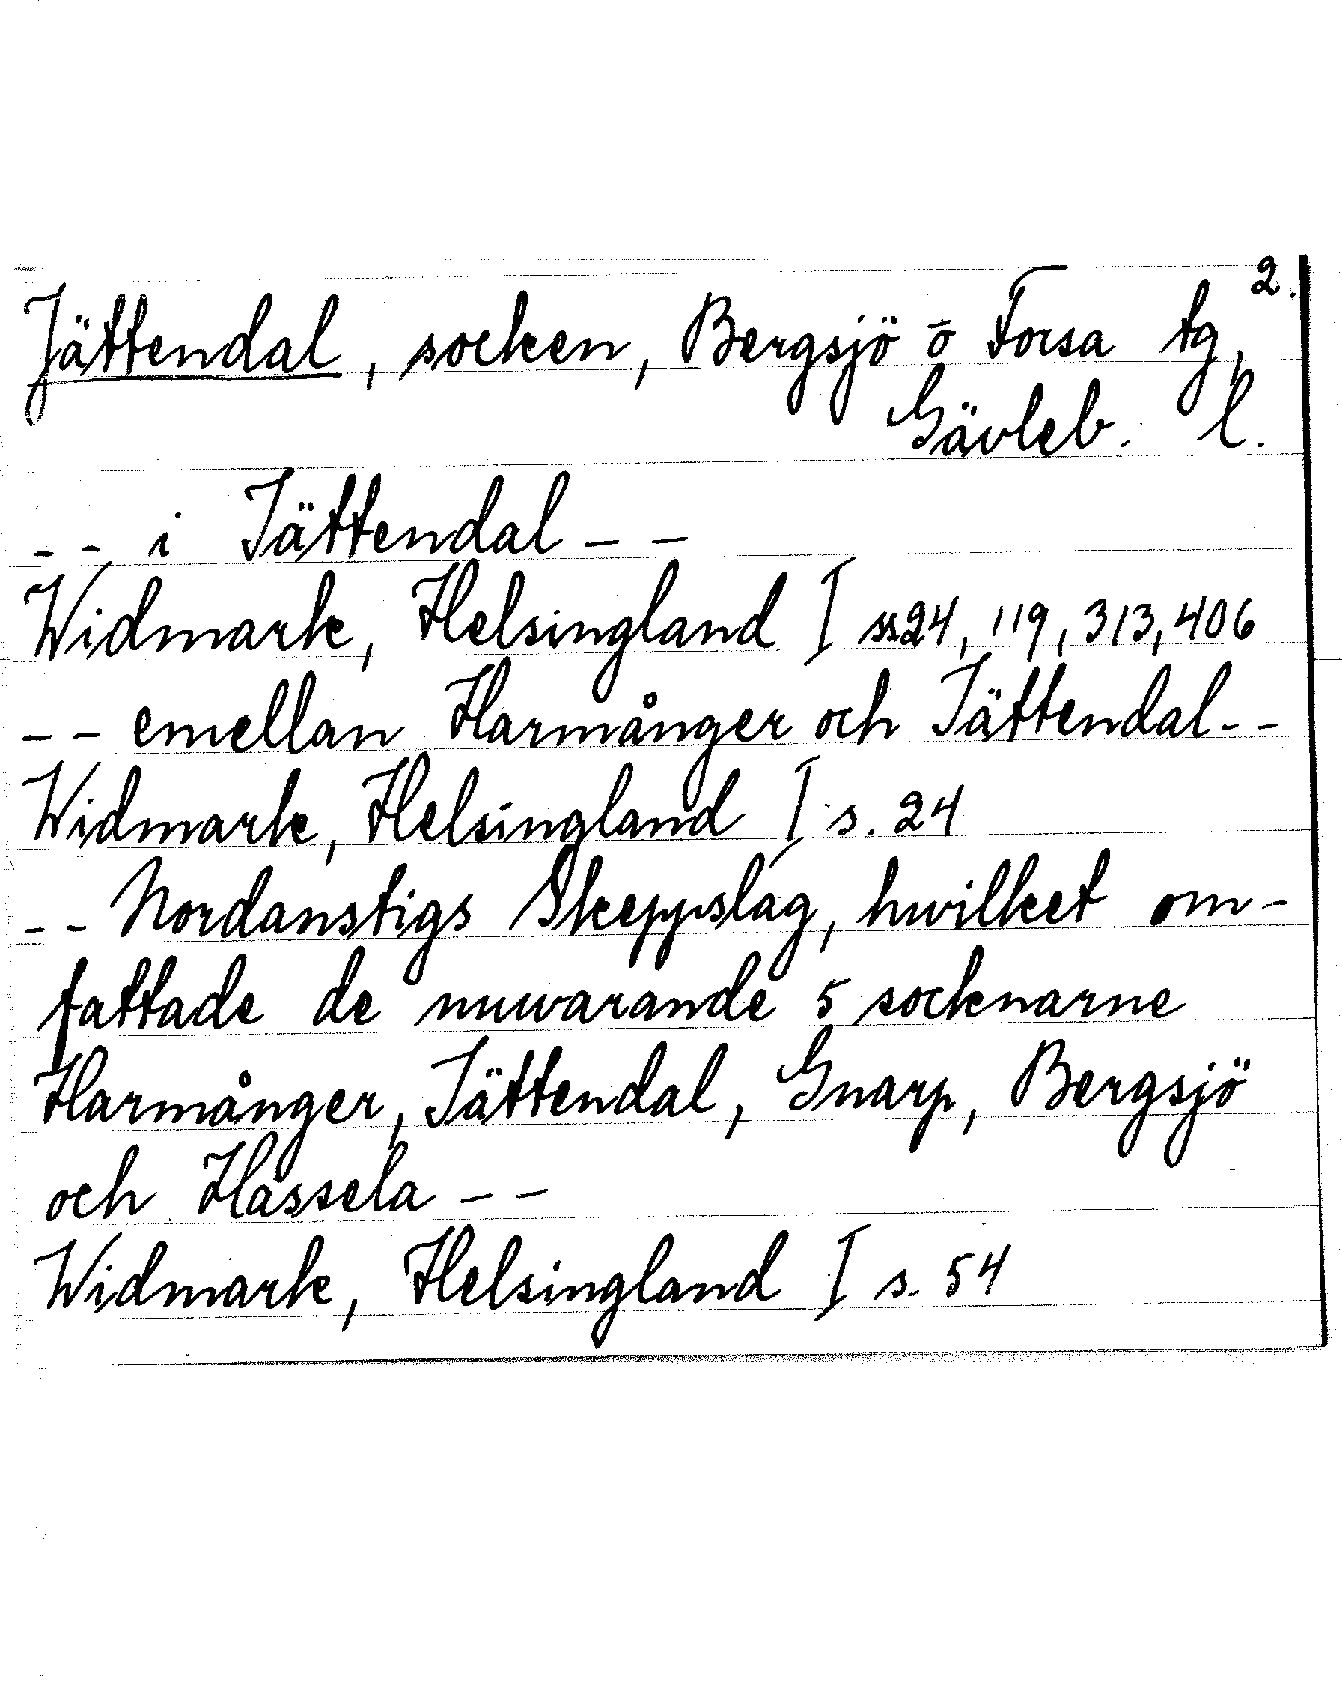 2.
Jättendal, socken, Bergsjö o Forsa tg,
Gävleb. l.
-- i Jättendal --
Widmark, Helsingland I ss24, 119, 313, 406
-- emellan Harmånger och Jättendal--
Widmark, Helsingland I s. 24
-- Nordanstigs Skeppslag, hwilket om-
fattade de nuwarande 5 socknarne
Harmånger, Jättendal, Gnarp, Bergsjö
och Hassela --
Widmark, Helsingland I s. 54